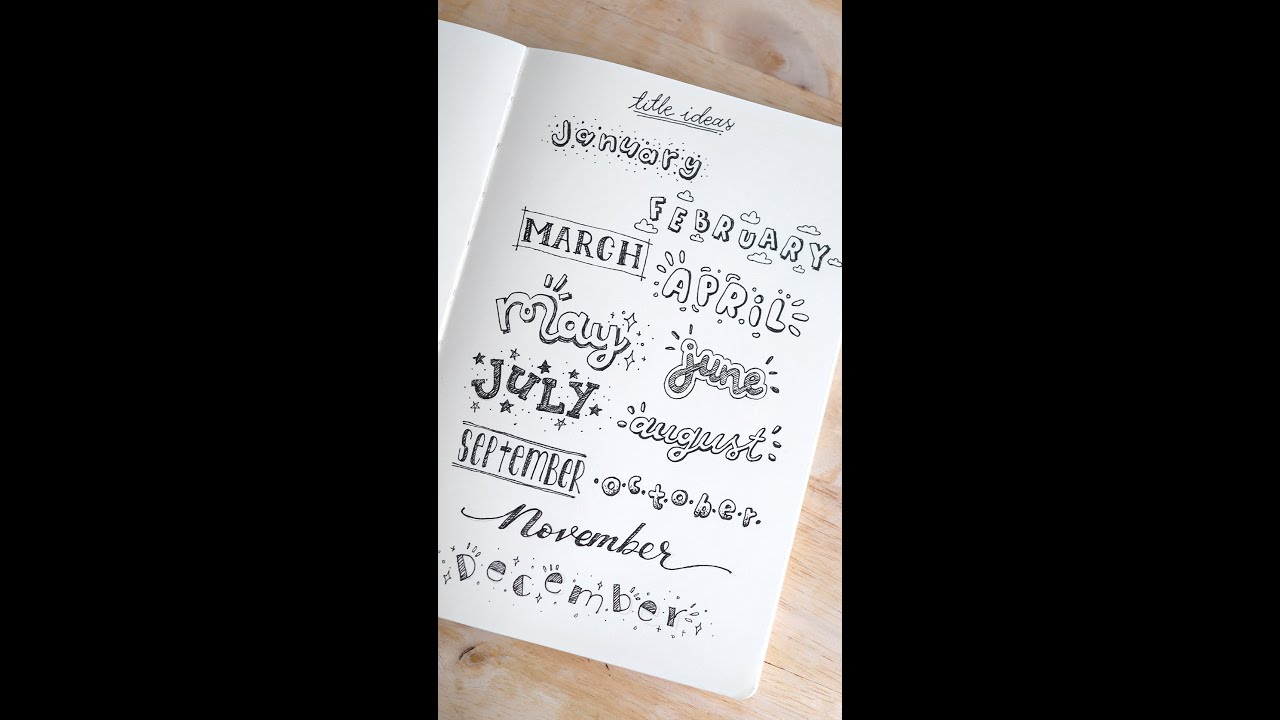 title ideas
January
FEBRUARY
MARCH
APRiL
may
june
JULY
august
SEPTEMBER
october
November
December